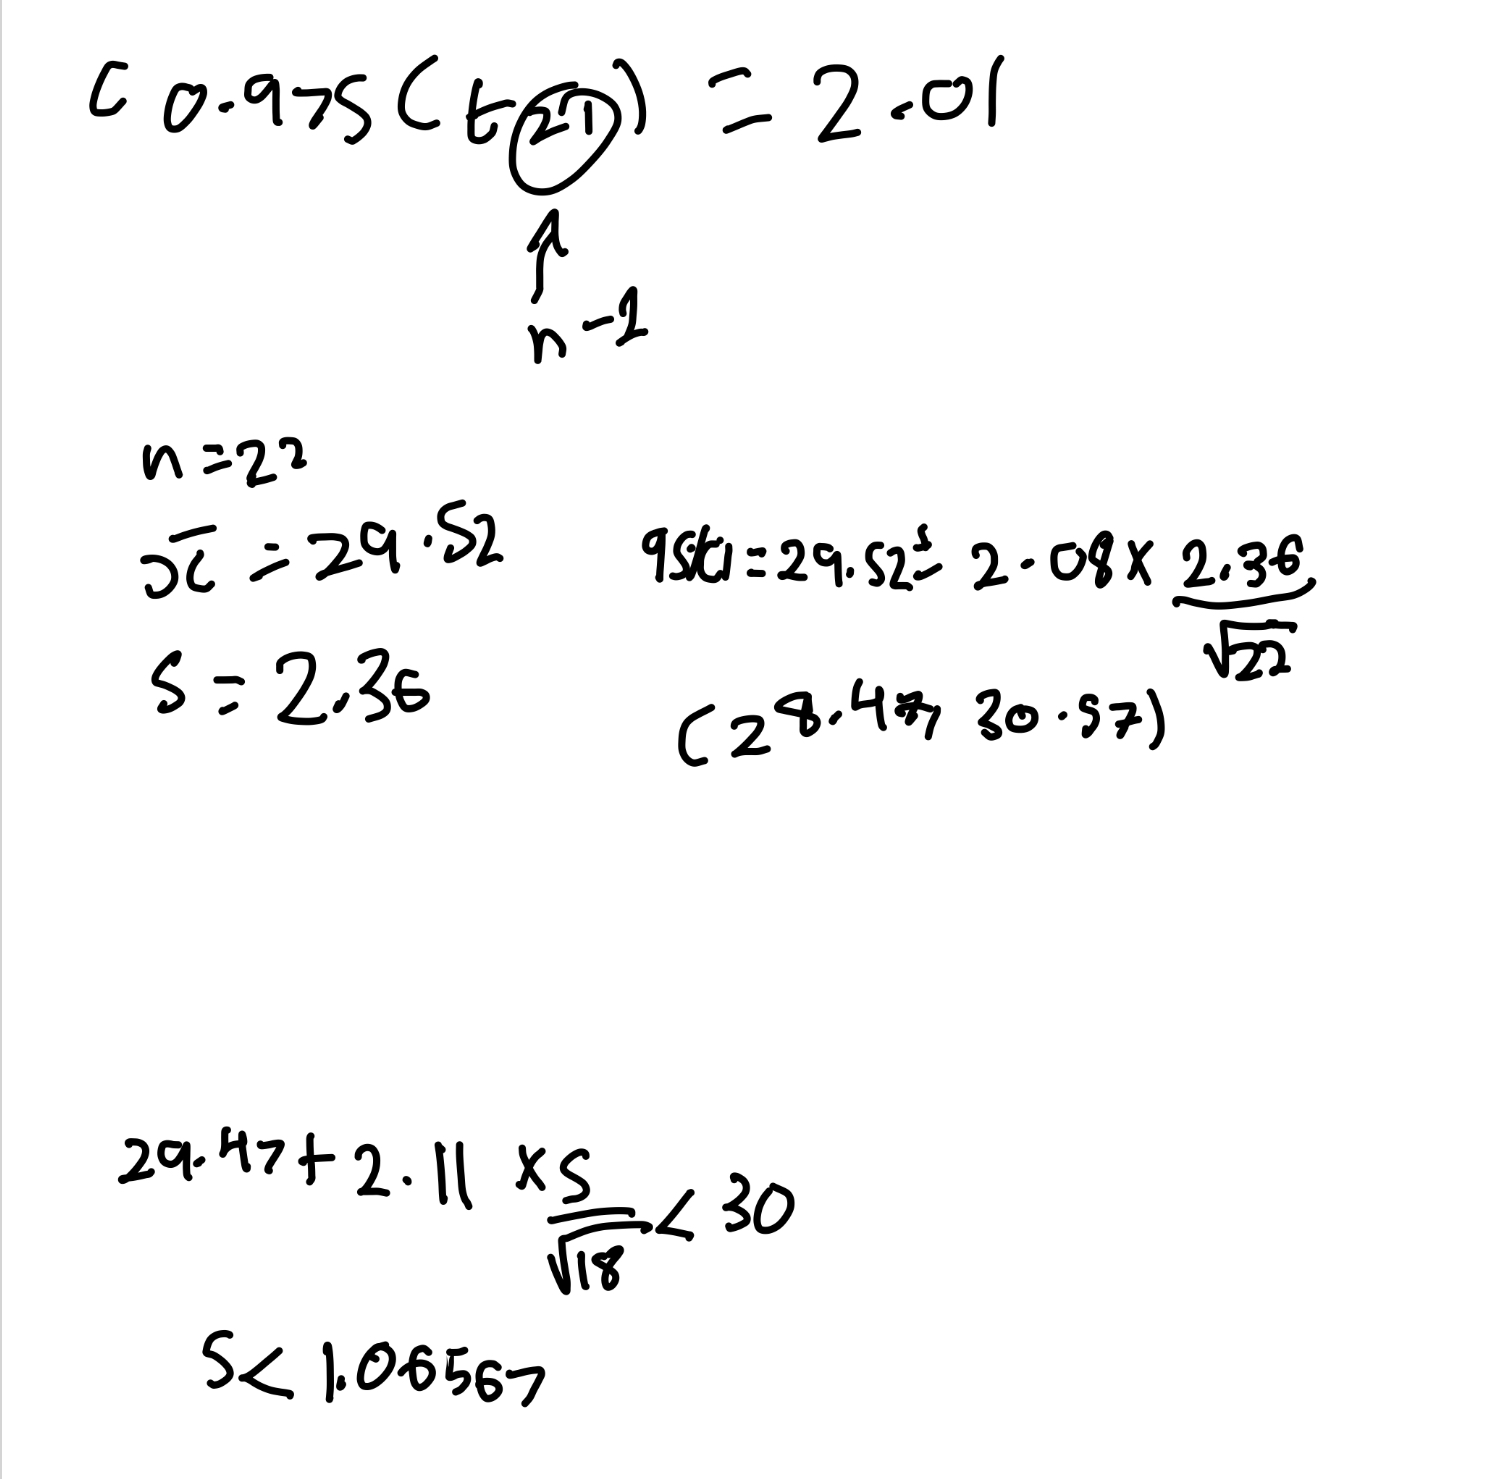 C 0.975 (t21) = 2.01
n-1
n=22
x̄ = 29.52
95%CI = 29.52 ± 2.08 × 2.36/√22
s = 2.36
(28.47, 30.57)
29.47 + 2.11 × s/√18 < 30
S < 1.06567